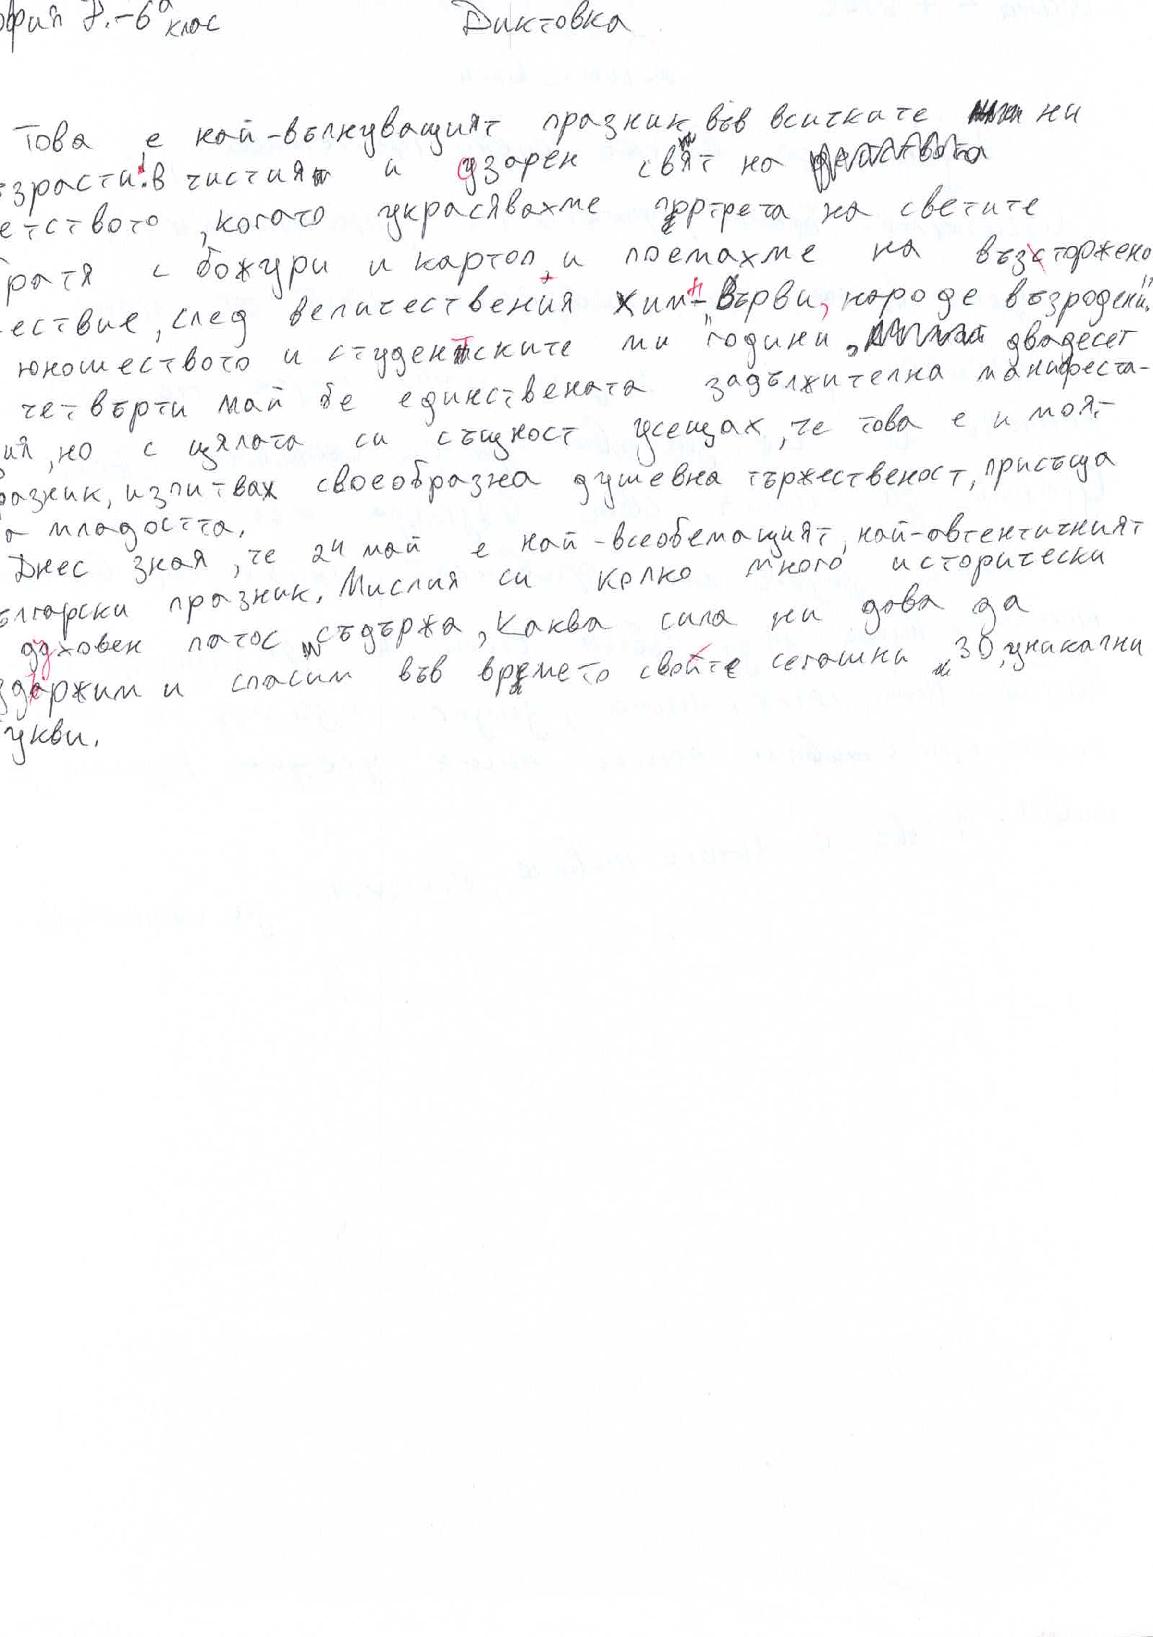 офия Р.-6а клас Диктовка
Това е най-вълнуващият празник във всичките ни
ъзрасти: в чистия и озарен свят на
етството, когато украсявахме портрета на светите
ратя с божури и картон, и поемахме на възторжено
ествие, след величествения химн - "Върви, народе възродени".
юношеството и студентските ми години, двадесет
четвърти май бе единствената задължителна манифеста-
ия, но с цялата си същност усещах, че това е и моят
разник, изпитвах своеобразна душевна тържественост, присъща
а младостта.
Днес зная, че 24 май е най-всеобемащият, най-автентичният
ългарски празник. Мислия си колко много исторически
духовен патос съдържа, каква сила ни дава да
държим и спасим във времето своите сегашни 30 уникални
укви.